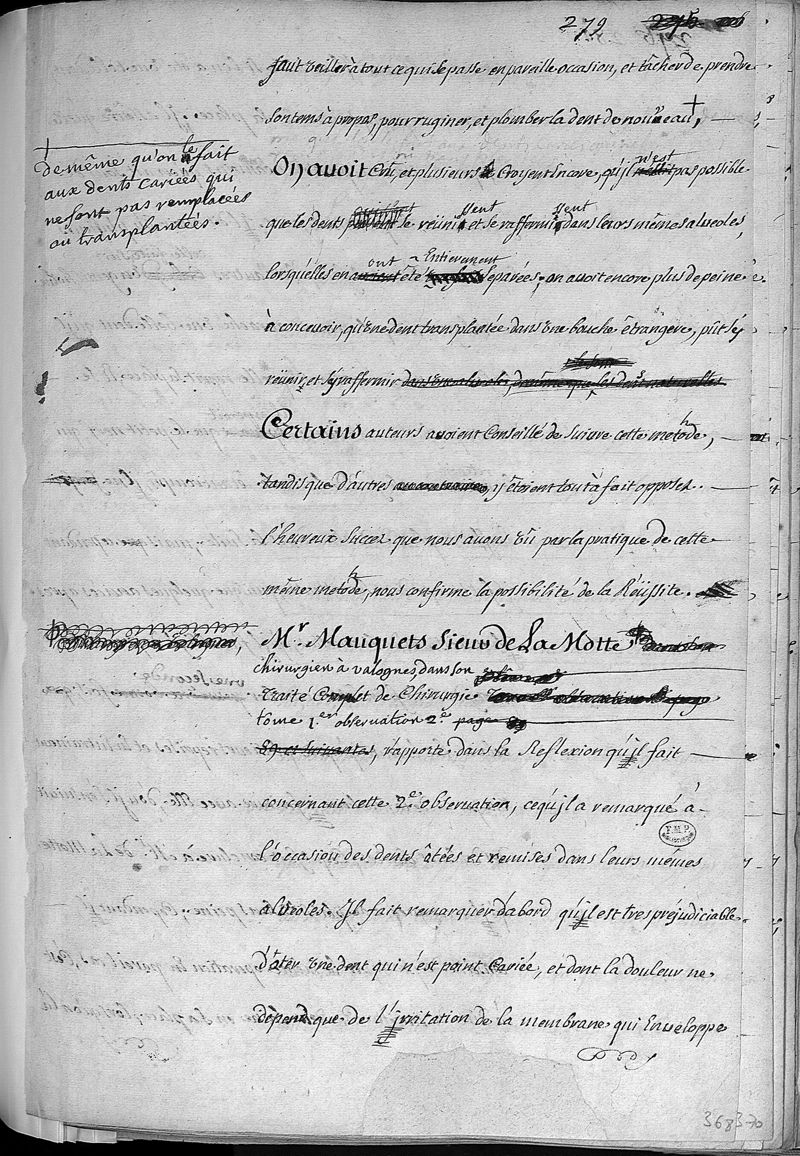 279
faut veiller à tout ce qui se passe en pareille occasion, et tâcher de prendre
son tems à propos, pour ruginer, et plomber la dent de nouveau †,
†
de même qu'on le fait
aux dents cariéés qui
ne sont pas remplacéés
ou transplantéés.
On avoit Cru, et plusieurs Croyent Encore, qu'il n'est pas possible
que les dents se reünissent et se raffermissent dans leurs mêmes alveoles,
lorsqu'elles en ont été Entierement separées; on avoit encore plus de peine
à concevoir, qu'une dent transplantée dans une bouche êtrangere, pût s'y
reünir, et s'y raffermir dans
Certains auteurs avoient Conseillé de Suivre cette methode,
tandis que d'autres au contraire, y êtoient tout à fait opposez.
l'heureux Succez que nous avons vû par la pratique de cette
même methode, nous confirme la possibilité de la Réüssite.
Mr. Mauquets Sieur de La Motte
chirurgien à valognes, dans son
Traité Complet de Chirurgie
tôme 1.er observation 2.e page 89
89 et suivantes, rapporte dans la Reflexion qu'il fait
concernant cette 2.e observation, ce qu'jl a remarqué à
l'occasion des dents ôtées et remises dans leurs mêmes
F.M.P.
alveoles. Jl fait remarquer d'abord qu'jl est tres préjudiciable
d'ôter une dent qui n'est point Cariée, et dont la douleur ne
dépend que de l'jrritation de la membrane qui Enveloppe
368370